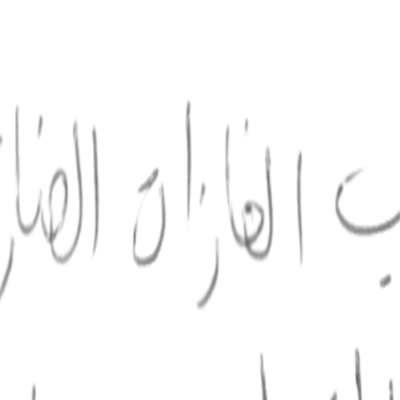 ب الغازات الضار